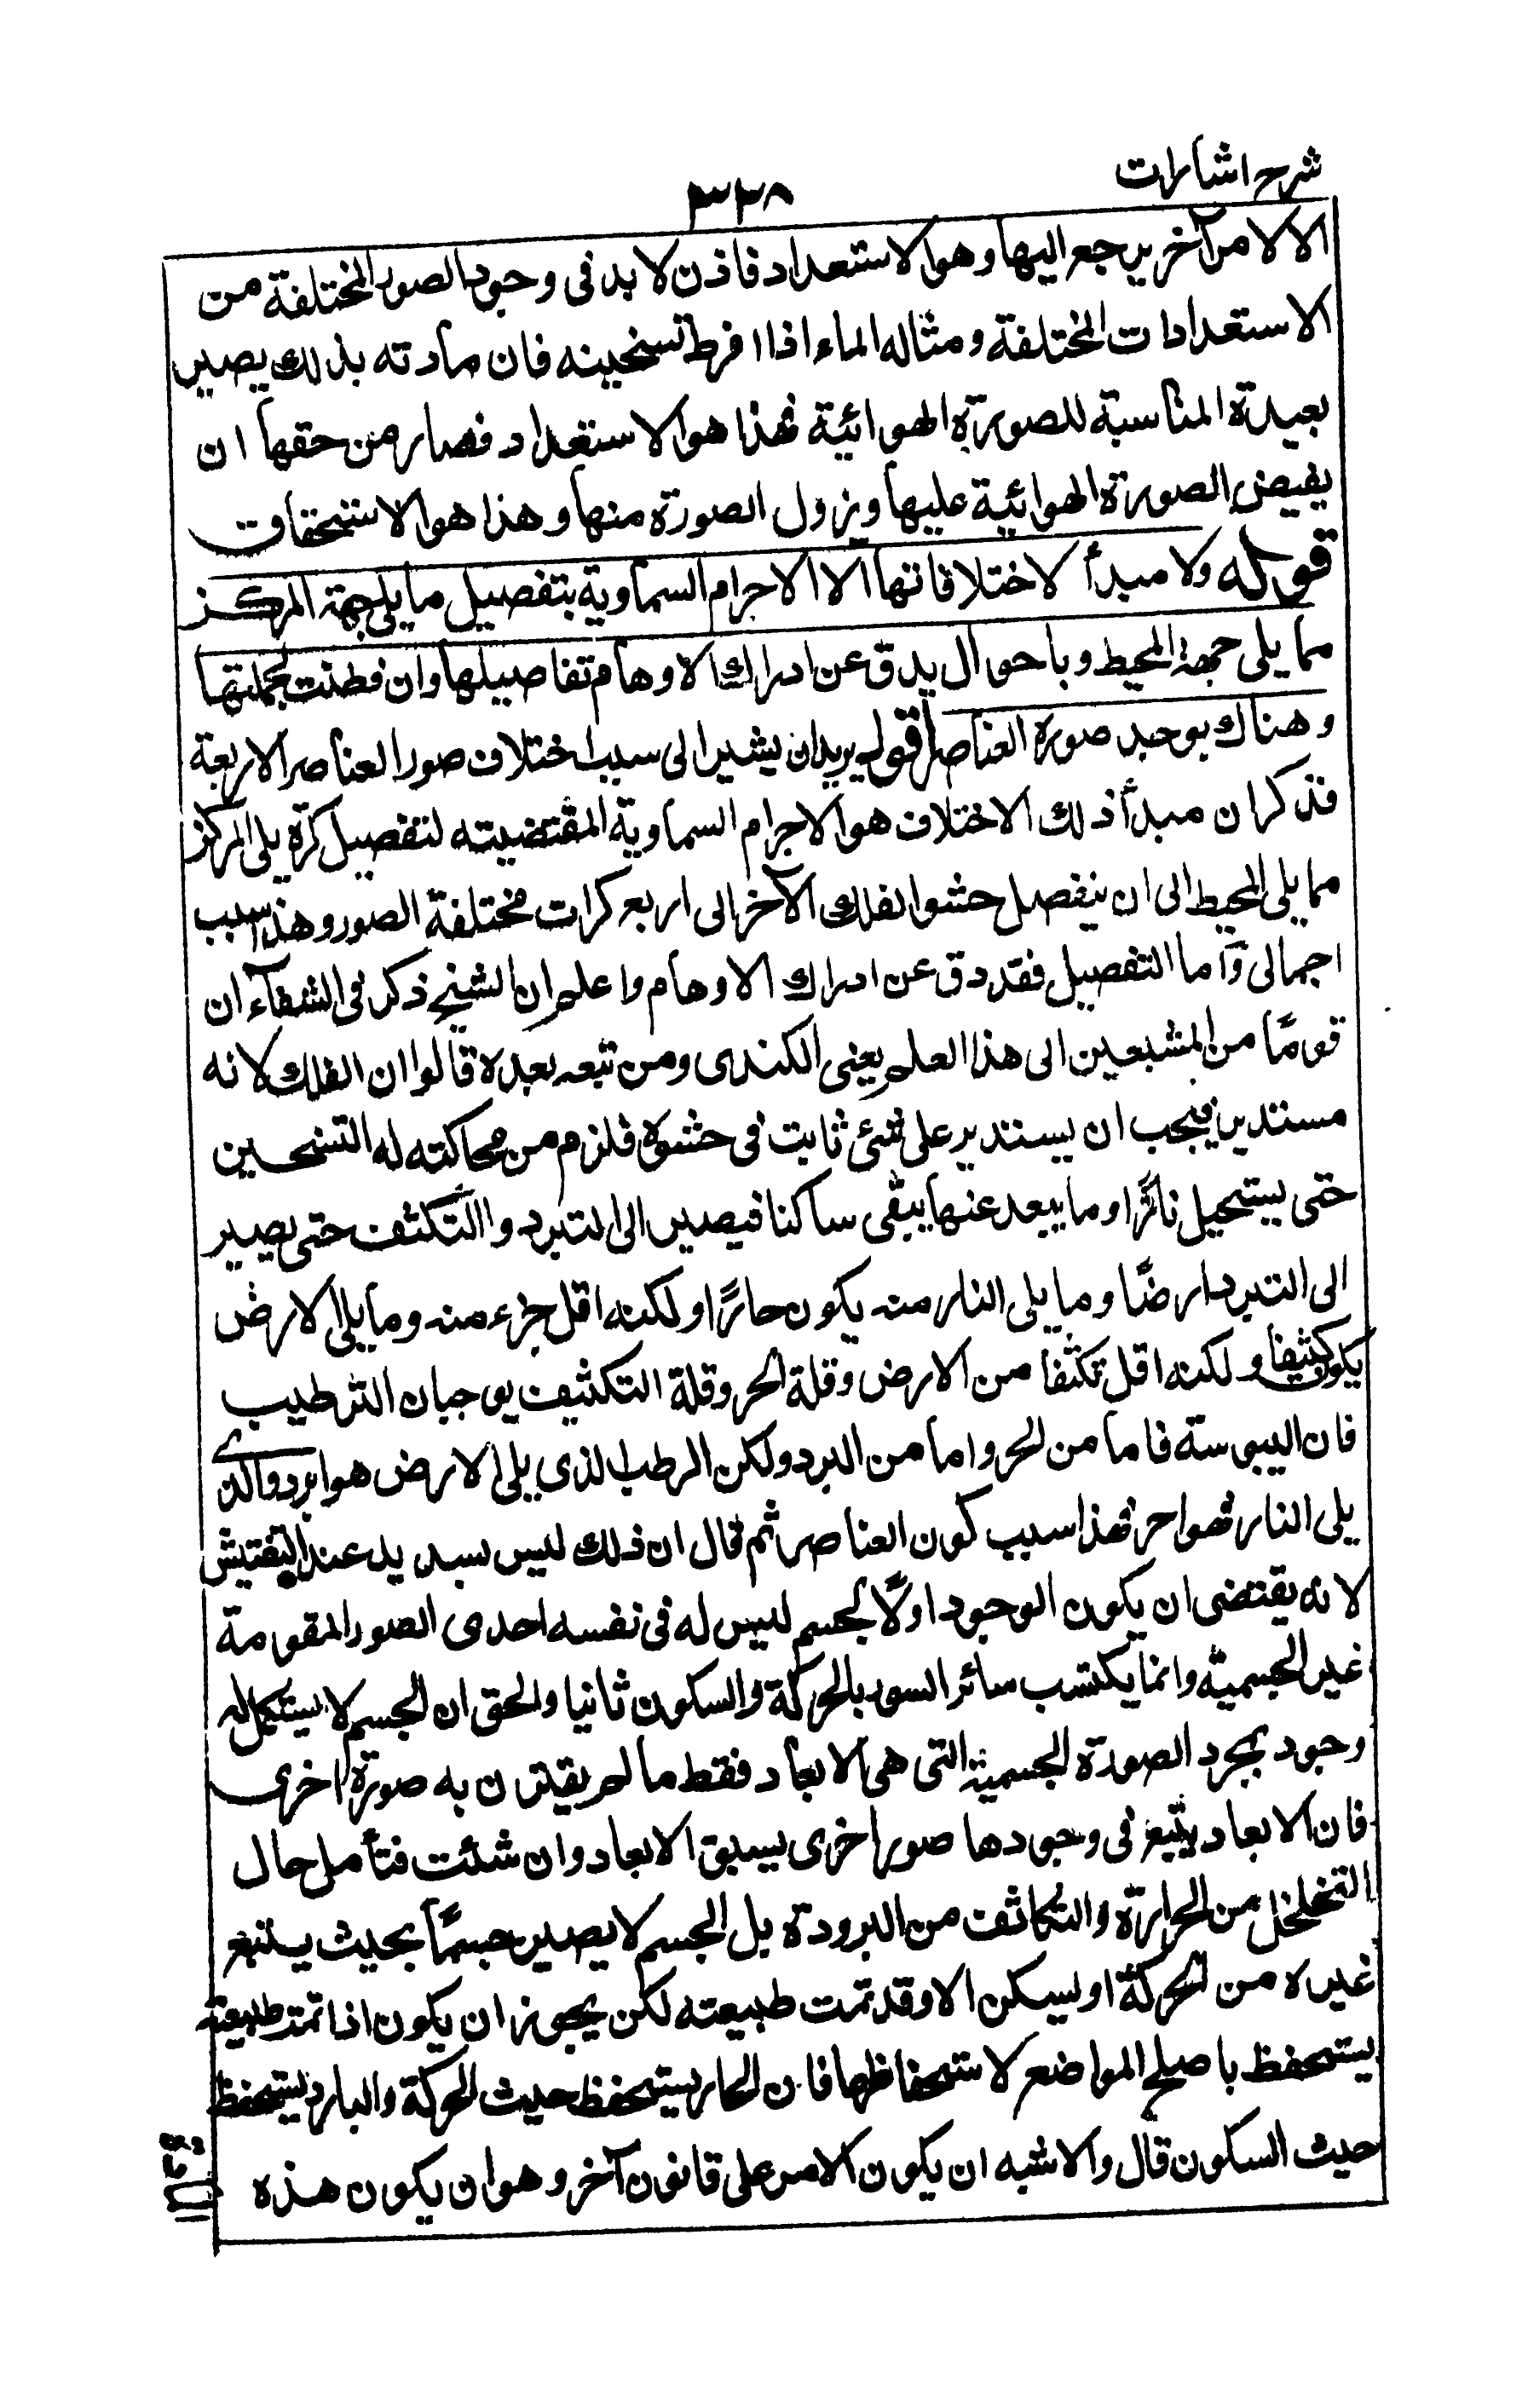 شرح اشارات
٣٣٨
الا لامر آخر يرجع اليها وهو الاستعداد فاذن لا بد فى وجود الصور المختلفة من
الاستعدادات المختلفة ومثاله الماء اذا افرط تسخينه فان مادته بذلك يصير
بعيدة المناسبة للصورة الهوائية فهذا هو الاستعداد فصار من حقها ان
يفيض الصورة الهوائية عليها ويزول الصورة منها وهذا هو الاستحقاق
قوله ولا مبدأ لاختلافاتها الا الاجرام السماوية بتفصيل ما يلى جهة المركز
مما يلى جهة المحيط وباحوال يدق عن ادراك الاوهام تفاصيلها وان فطنت بجملتها
وهناك يوجد صورة العناصر اقول يريد ان يشير الى سبب اختلاف صور العناصر الاربعة
فذكر ان مبدأ ذلك الاختلاف هو الاجرام السماوية المقتضيته لتفصيل كرة يلى المركز
مما يلى المحيط الى ان ينفصل حشو الفلك الآخر الى اربع كرات مختلفة الصور وهذا سبب
اجمالى وآما التفصيل فقد دق عن ادراك الاوهام واعلم ان الشيخ ذكر فى الشفآء ان
قومًا من المشبعين الى هذا العلم يعنى الكندى ومن تبعه بعده قالوا ان الفلك لانه
مستدير فيجب ان يستدير على شئ ثابت فى حشوه فلزم من محاكته له التسخين
حتى يستحيل نارًا وما يبعد عنها يبقى ساكنا فيصير الى التبرد واالتكثف حتى يصير
الى التبرد ارضًا وما يلى النار منه يكون حارًا ولكنه اقل جزء منه وما يلى الارض
يكون كثيفا ولكنه اقل تكثفا من الارض وقلة الحر وقلة التكثيف يوجبان الترطيب
فان اليبوسة فاما من الحر واما من البرد ولكن الرطب الذى يلى الارض هو ابرد والذى
يلى النار فهو احر فهذا سبب كون العناصر ثم قال ان ذلك ليس بسديد عند التفتيش
لانه يقتضى ان يكون الوجود اولًا لجسم ليس له فى نفسه احدى الصور المقومة
غير الجسمية وانما يكتسب سائر السور بالحركة والسكون ثانيا والحق ان الجسم لا يستكمل له
وجود بمجرد الصورة الجسمية التى هى الابعاد فقط ما لم يقترن به صورة اخرى
فان الابعاد يتبع فى وجودها صورا اخرى يسبق الابعاد وان شئت فتأمل حال
التخلخل من الحرارة والتكاثف من البرودة بل الجسم لا يصير جسمًا بحيث يستتبع
غيره من الحركة او ليسكن الا وقد تمت طبيعته لكن يجوز ان يكون اذا تمت طبيعته
يستحفظ باصلح المواضع لاستحفاظها فان الحار يستحفظ حيث الحركة والبارد يستحفظ
حيث السكون قال والاشبه ان يكون الامر على قانون آخر وهو ان يكون هذه